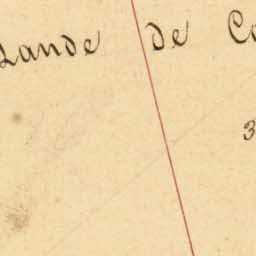 Lande de
3